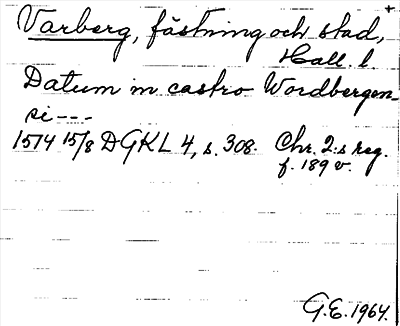 Varberg, fästning och stad,
Hall. l.
Datum in castro Wordbergen-
si---
1514 15/8 DGKL 4, s. 308. Chr. 2:s reg.
f. 189 v.
G.E. 1964.